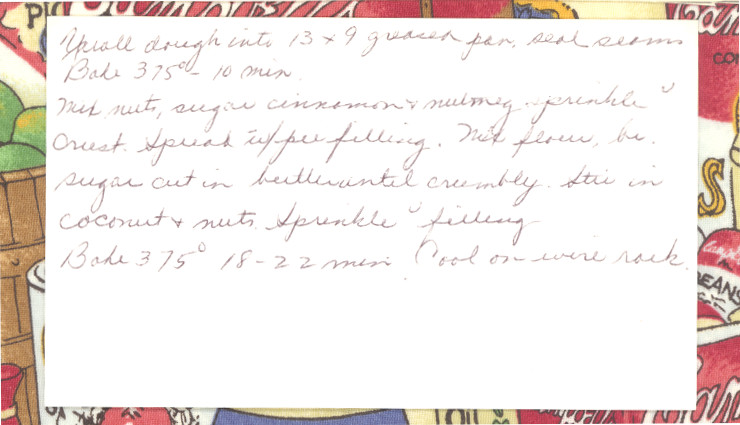 Unroll dough into 13 x 9 greased pan, seal seams
Bake 375° - 10 min.
Mix nuts, sugar cinnamon & nutmeg sprinkle
Crust. Spread w/ pie filling. Mix flour, br.
sugar cut in butter until crumbly. Stir in
coconut & nuts. Sprinkle filling
Bake 375° 18-22 min Cool on wire rack.
EANS